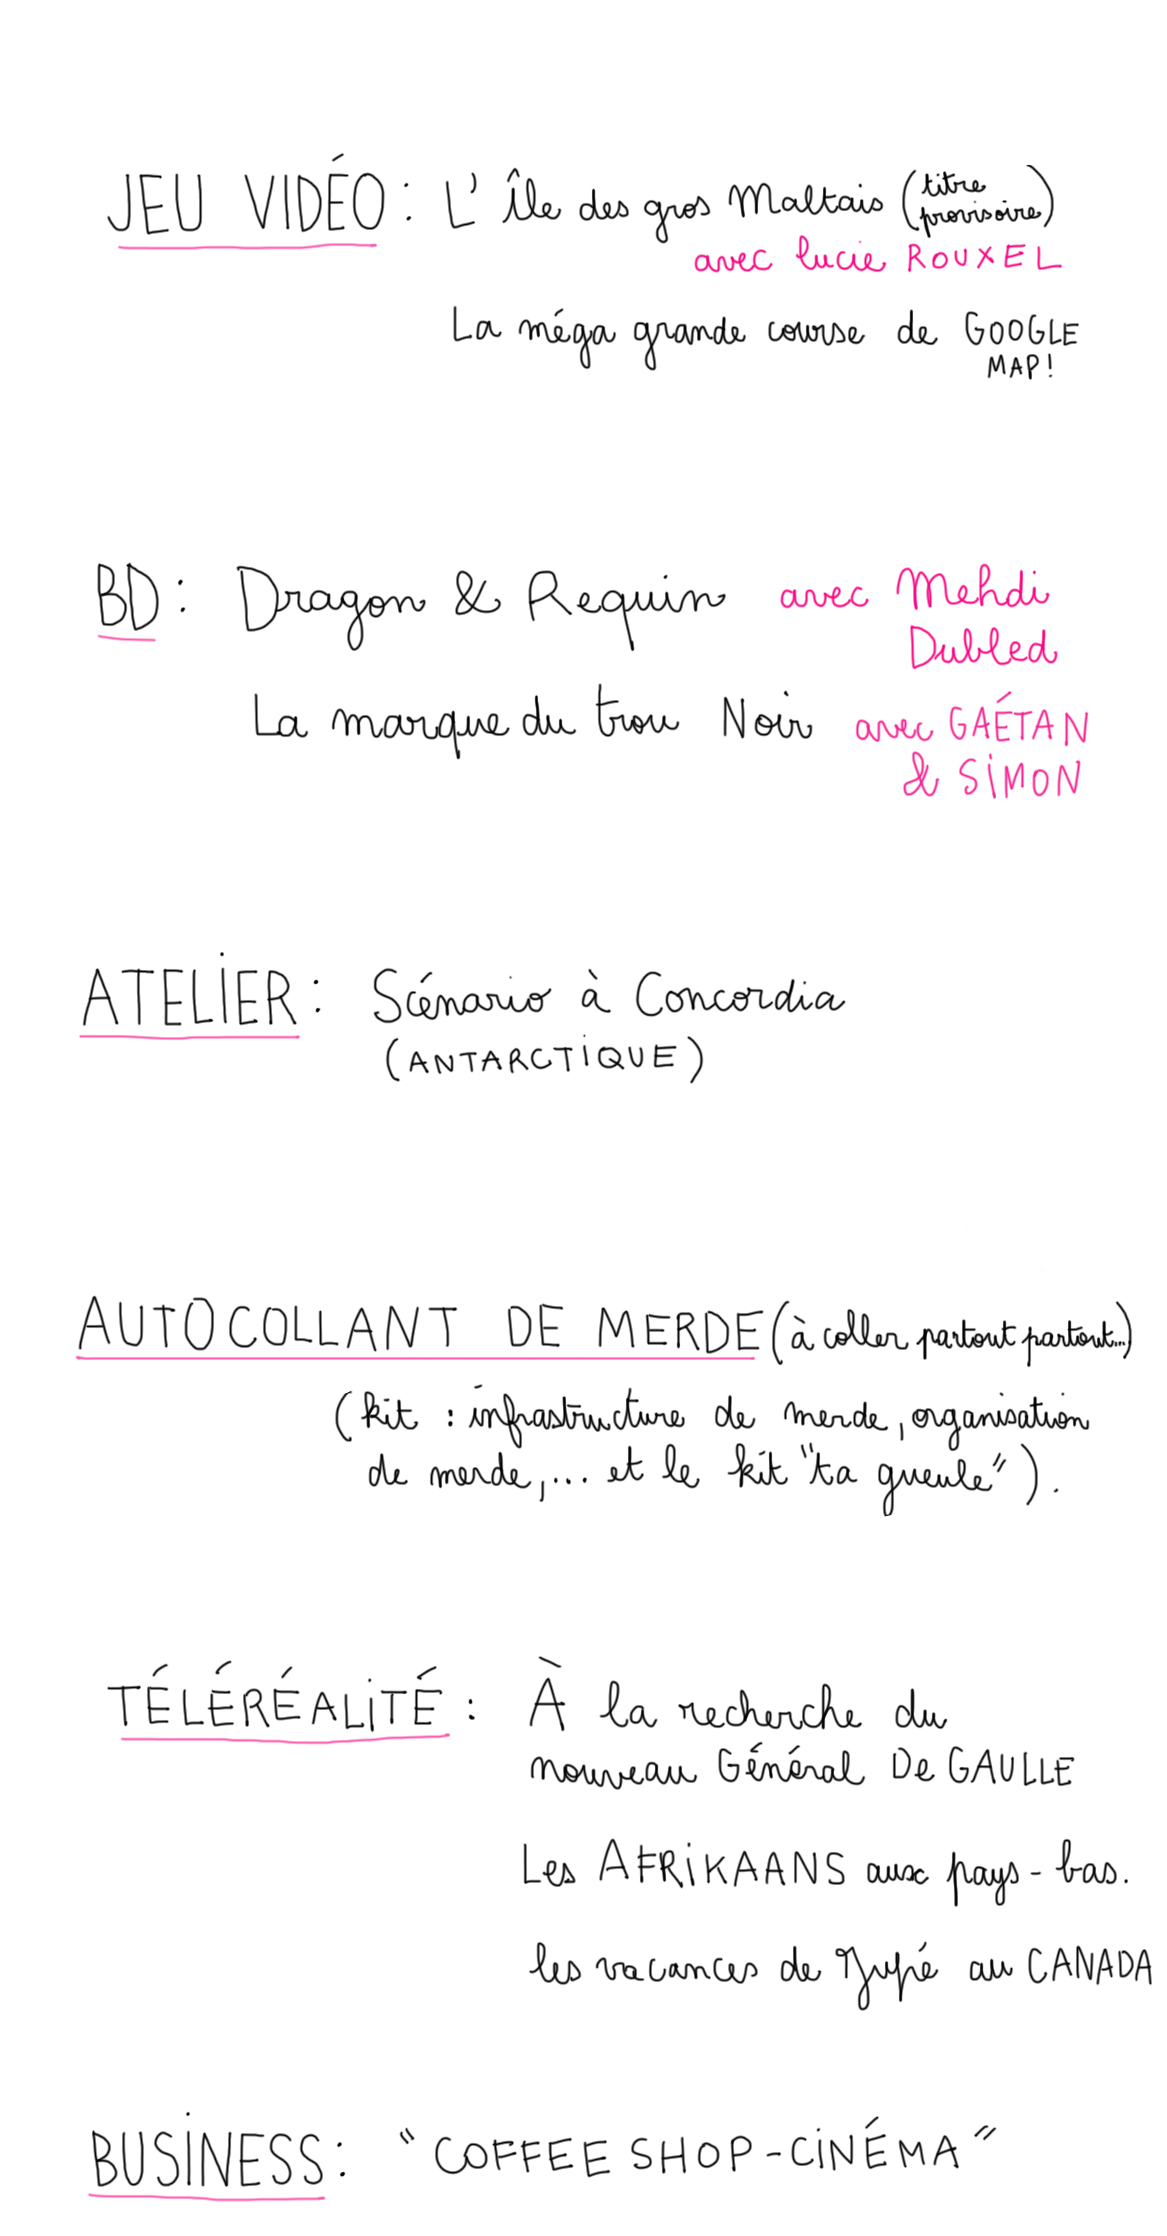 JEU VIDÉO : L'Île des gros Maltais (titre provisoire)
avec lucie ROUXEL
La méga grande course de GOOGLE
MAP !
BD : Dragon & Requin avec Mehdi
Dubled
La marque du trou Noir avec GAÉTAN
& SIMON
ATELIER : Scénario à Concordia
(ANTARCTIQUE)
AUTOCOLLANT DE MERDE (à coller partout partout...)
(kit : infrastructure de merde, organisation
de merde,... et le kit "ta gueule").
TÉLÉRÉALITÉ : À la recherche du
nouveau Général De GAULLE
Les AFRIKAANS aux pays-bas.
les vacances de Jupé au CANADA
BUSINESS : "COFFEE SHOP-CINÉMA"